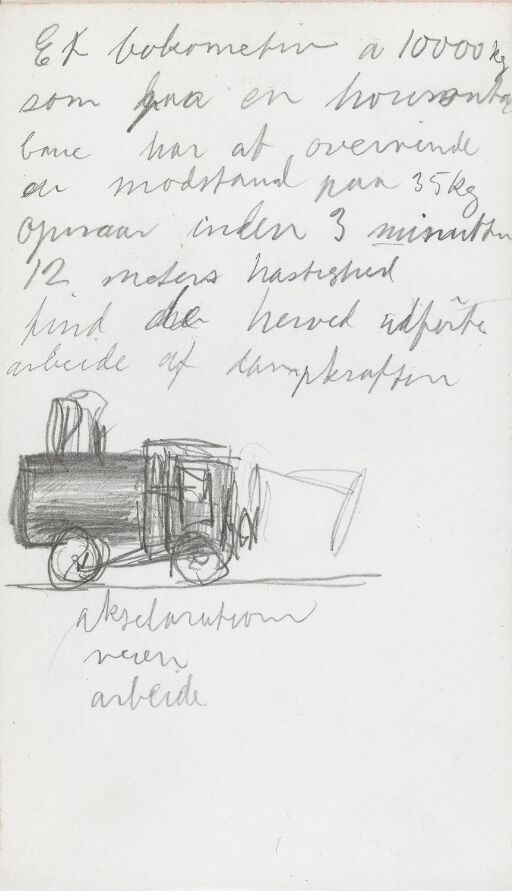 Et lokometiv a 10000 kg
som paa en horisontal
bane har at overvinde
en modstand paa 35 kg
opnaar inden 3 minutter
12 meters hastighed
find de herved udførte
arbeide af dampkraften
akselarationen
veien
arbeide